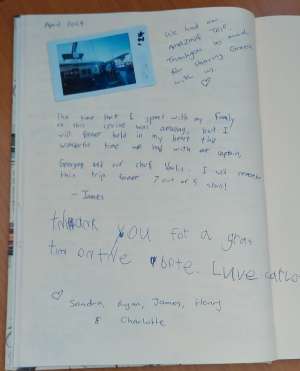 April 2024
We had an
AMAZING TRIP.
Thankyou so much
for sharing Greece
with us.
The time that I spent with my family
on this cruise was amazing, but I
will forever hold in my heart the
wonderful time we had with our captain,
Georgios and our chef Vasilis. I will remember
this trip forever 7 out of 5 stars!
- James
thank you for a grat
tim on the bote. Luve
Sandra, Ryan, James, Henry
& Charlotte